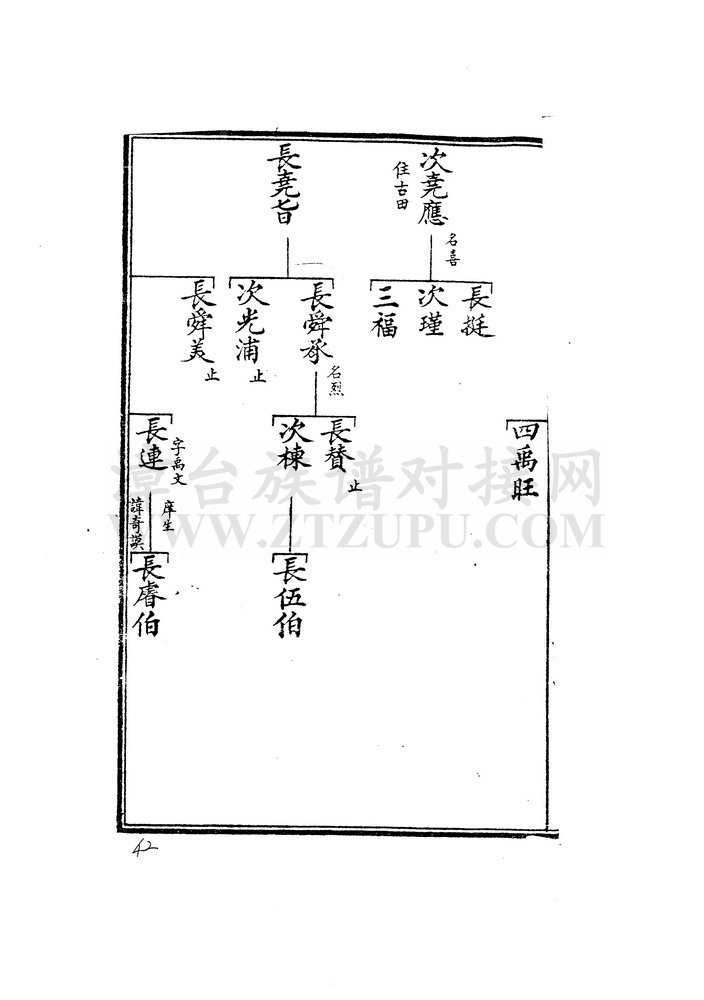 次堯應
住古田
名喜
長堯旨
長挺
次瑾
三福
長舜承
名烈
次光浦
止
長舜美
止
四禹旺
長賛
止
次棟
長連
字禹文
庠生
諱奇謨
長伍伯
長睿伯
漳台族谱对接网
WWW.ZTZUPU.COM
42